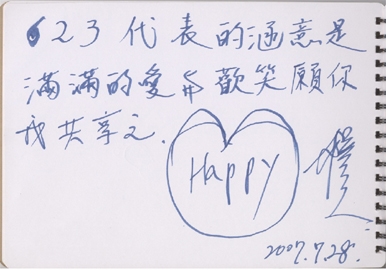 623代表的涵意是
滿滿的愛與歡笑願你
我共享之.
Happy
2007.7.28.